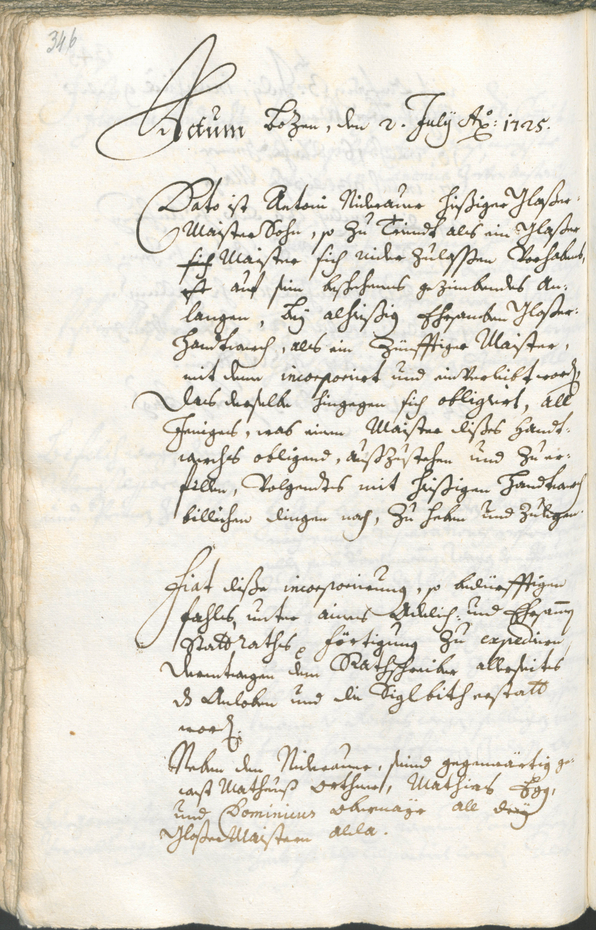 346
Actum Bozen, den 2. July Ao: 1725.
Dato ist Antoni Nideraŭer hießiger Glaßer-
Maisters Sohn, so zu Trindt als ein Glaßer
sich Maister sich nider zulaßen Vorhabens,
ist auf sein beschehenes gezimbendes An-
langen, bey alhießig Ehrsamben Glaßer-
Handtwerch, als ein Zünfftiger Maister,
mit deme incorporiert und einverleibt word.
Das derselbe hingegen sich obligiert, all
Jheniges, was einem Maister dißes Handt-
werchs obligend, außzustehen und zu er-
fillen, Volgendts mit hießigen Handtwerch
billichen dingen nach, zu heben und zu legen.
Hat diße incorporierung, so bedürfftigen
fahls, unter aines Adelich: und Ehrsamen
Stattraths förtigung zu expedieren,
Derentwegen dem Rathschreiber allerseits
ds Anloben und die Siglbith erstatt
word.
Neben den Nideraŭer, seind gegenwärtig ge-
west Matheuß Orthner, Mathias Egg,
und Dominicus Obermayr all drey
Glaßer Maistern alda.